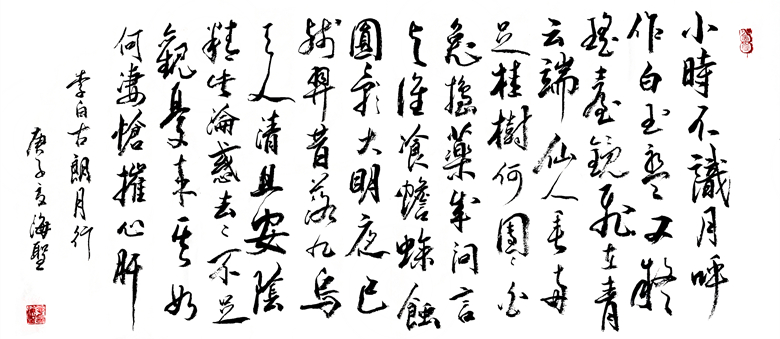 小時不識月呼
作白玉盤又疑
瑤臺鏡飛在青
云端仙人垂兩
足桂樹何團々白
兔搗藥成問言
与誰飡蟾蜍蝕
圓影大明夜已
殘羿昔落九烏
天人清且安陰
精此淪惑去々不足
觀憂來其如
何悽愴摧心肝
李白古朗月行
庚子夏海聖